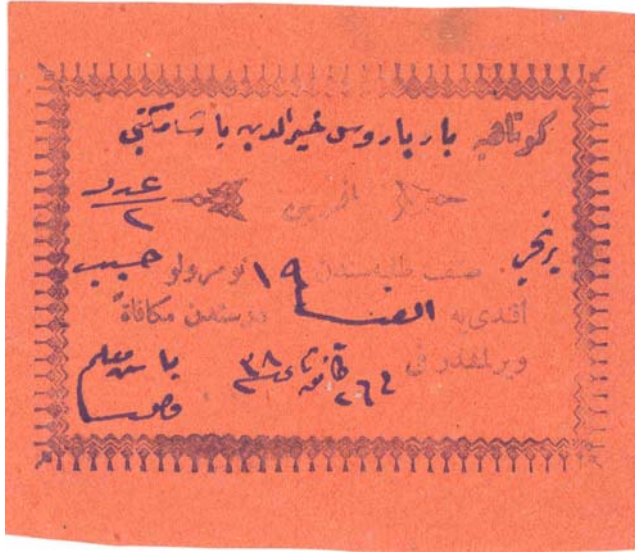 كوتاهیه بارباروس خیرالدین پاشا مكتبی
آفرین
عدد
٢
برنجی صنف طلبه‌سندن ١٩ نومرولو حسیب
افندی‌یه الفبا درسندن مكافاةً
ویرلمشدر فی ٢٤ كانون ثانی ٣٨ باش معلم